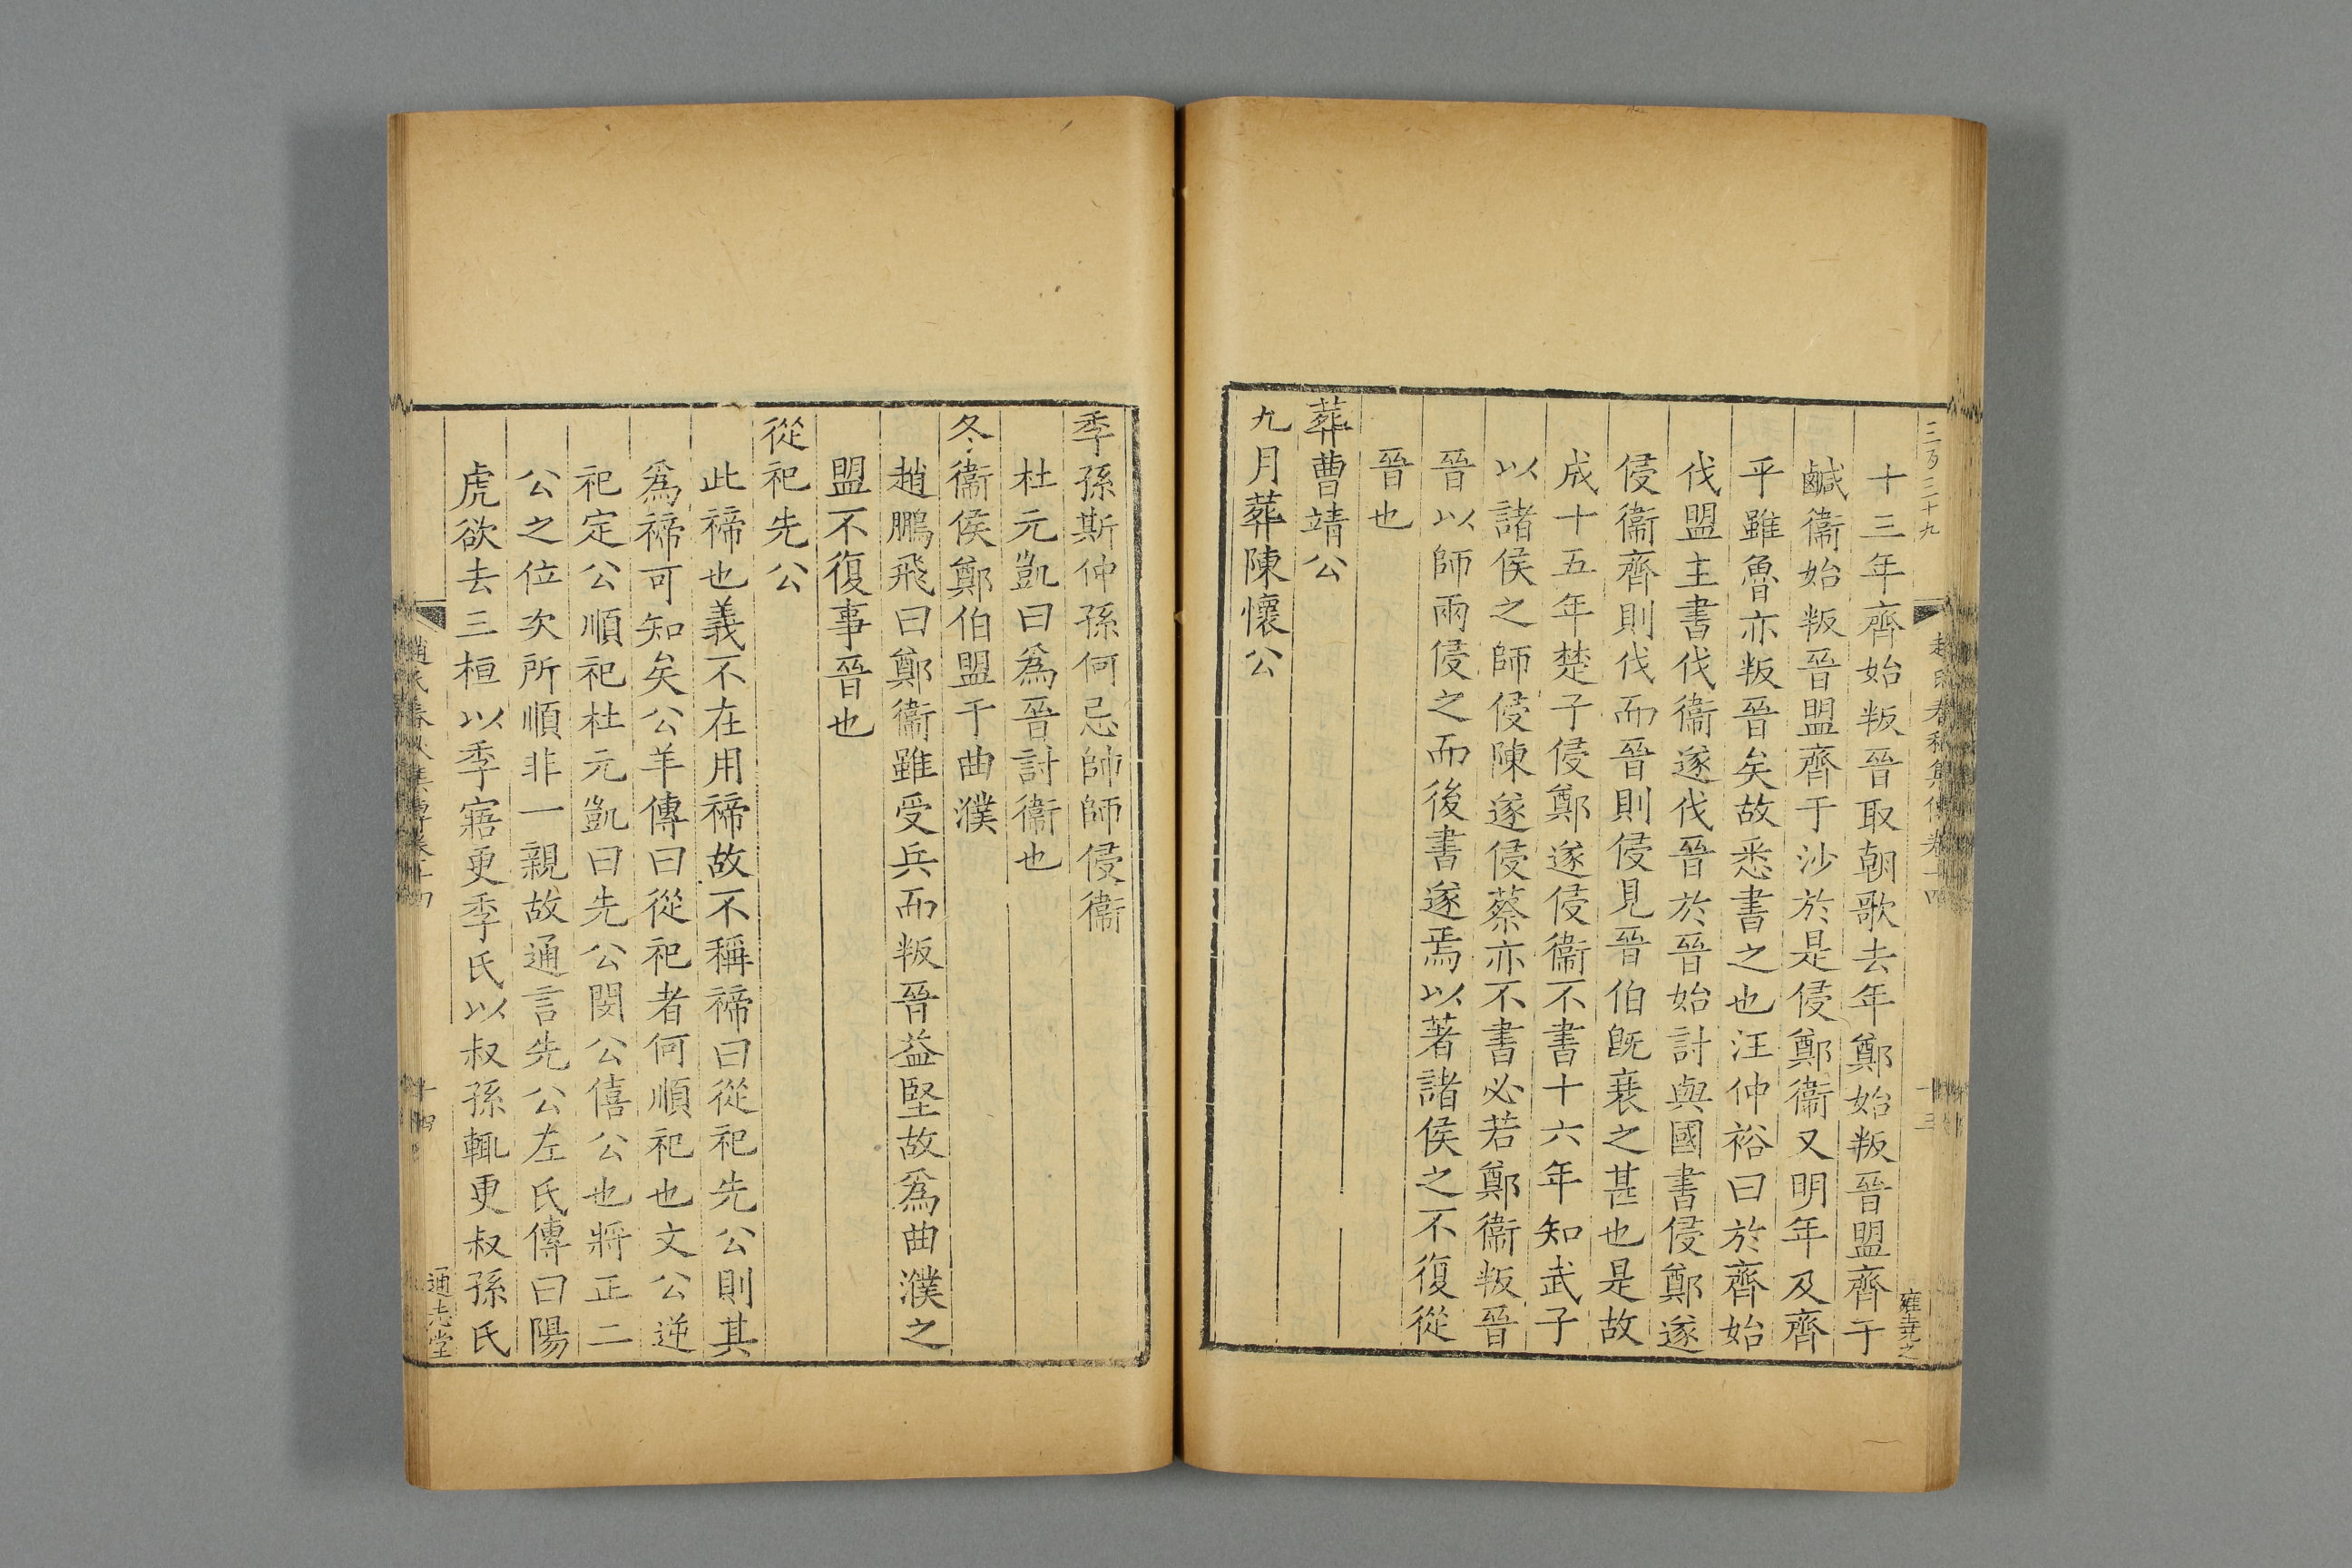 三百三十九
十三年齊始叛晉取朝歌去年鄭始叛晉盟齊于
鹹衞始叛晉盟齊于沙於是侵鄭衞又明年及齊
平雖魯亦叛晉矣故悉書之也汪仲裕曰於齊始
伐盟主書伐衞遂伐晉於晉始討與國書侵鄭遂
侵衞齊則伐而晉則侵見晉伯旣衰之甚也是故
成十五年楚子侵鄭遂侵衞不書十六年知武子
以諸侯之師侵陳遂侵蔡亦不書必若鄭衞叛晉
晉以師兩侵之而後書遂焉以著諸侯之不復從
晉也
葬曹靖公
九月葬陳懷公
季孫斯仲孫何忌帥師侵衞
杜元凱曰爲晉討衞也
冬衞侯鄭伯盟于曲濮
趙鵬飛曰鄭衞雖受兵而叛晉益堅故爲曲濮之
盟不復事晉也
從祀先公
此禘也義不在用禘故不稱禘曰從祀先公則其
爲禘可知矣公羊傳曰從祀者何順祀也文公逆
祀定公順祀杜元凱曰先公閔公僖公也將正二
公之位次所順非一親故通言先公左氏傳曰陽
虎欲去三桓以季寤更季氏以叔孫輒更叔孫氏
趙氏春秋集傳卷十四
十四
通志堂